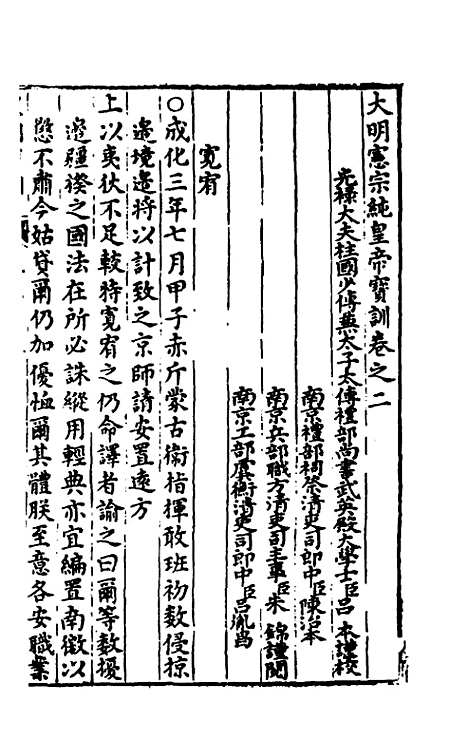 大明憲宗純皇帝寶訓卷之二
光祿大夫柱國少傅兼太子太傅禮部尚書武英殿大學士臣呂 本謹校
南京禮部祠祭清吏司郎中臣陳治本
南京兵部職方清吏司主事臣朱 錦謹閱
南京工部虞衡清吏司郎中臣呂胤昌
寬宥
○成化三年七月甲子赤斤蒙古衛指揮敢班初數侵掠
邊境邊將以計致之京師請安置遠方
上以夷狄不足較特寬宥之仍命譯者諭之曰爾等數擾
邊疆揆之國法在所必誅縱用輕典亦宜編置南徼以
懲不肅今姑貸爾仍加優恤爾其體朕至意各安職業